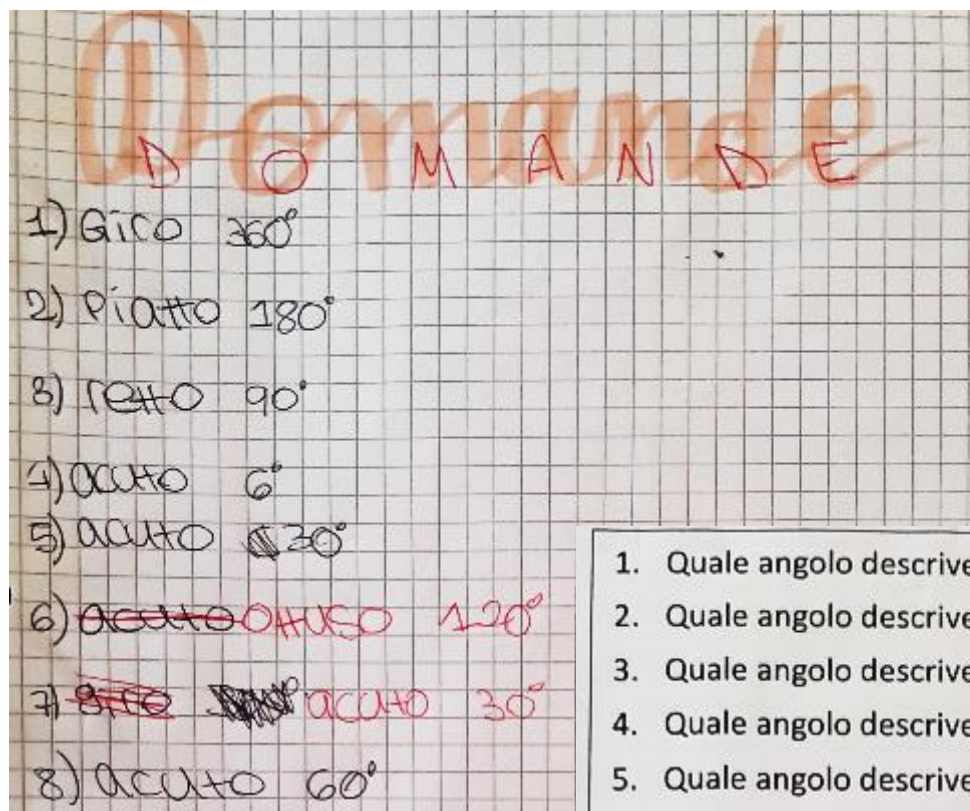 Domande
DOMANDE
1) Giro 360°
2) Piatto 180°
3) retto 90°
4) acuto 6°
5) acuto 30°
6) acuto ottuso 120°
7) giro acuto 30°
8) acuto 60°
1. Quale angolo descrive
2. Quale angolo descrive
3. Quale angolo descrive
4. Quale angolo descrive
5. Quale angolo descrive